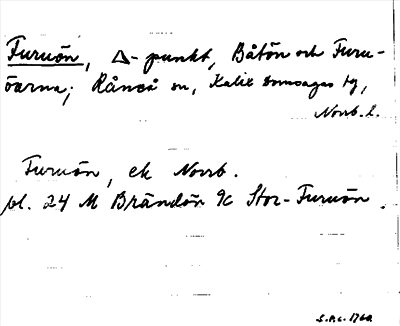 Furuön, △-punkt, Båtön och Furu-
öarna; Råneå sn, Kalix domsagas tg,
Norrb. l.
Furuön, ek Norrb.
bl. 24 M Brändön 9c Stor-Furuön.